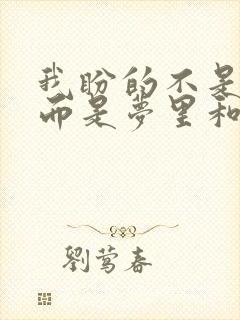 我盼的不是
而是梦里和
劉莺春